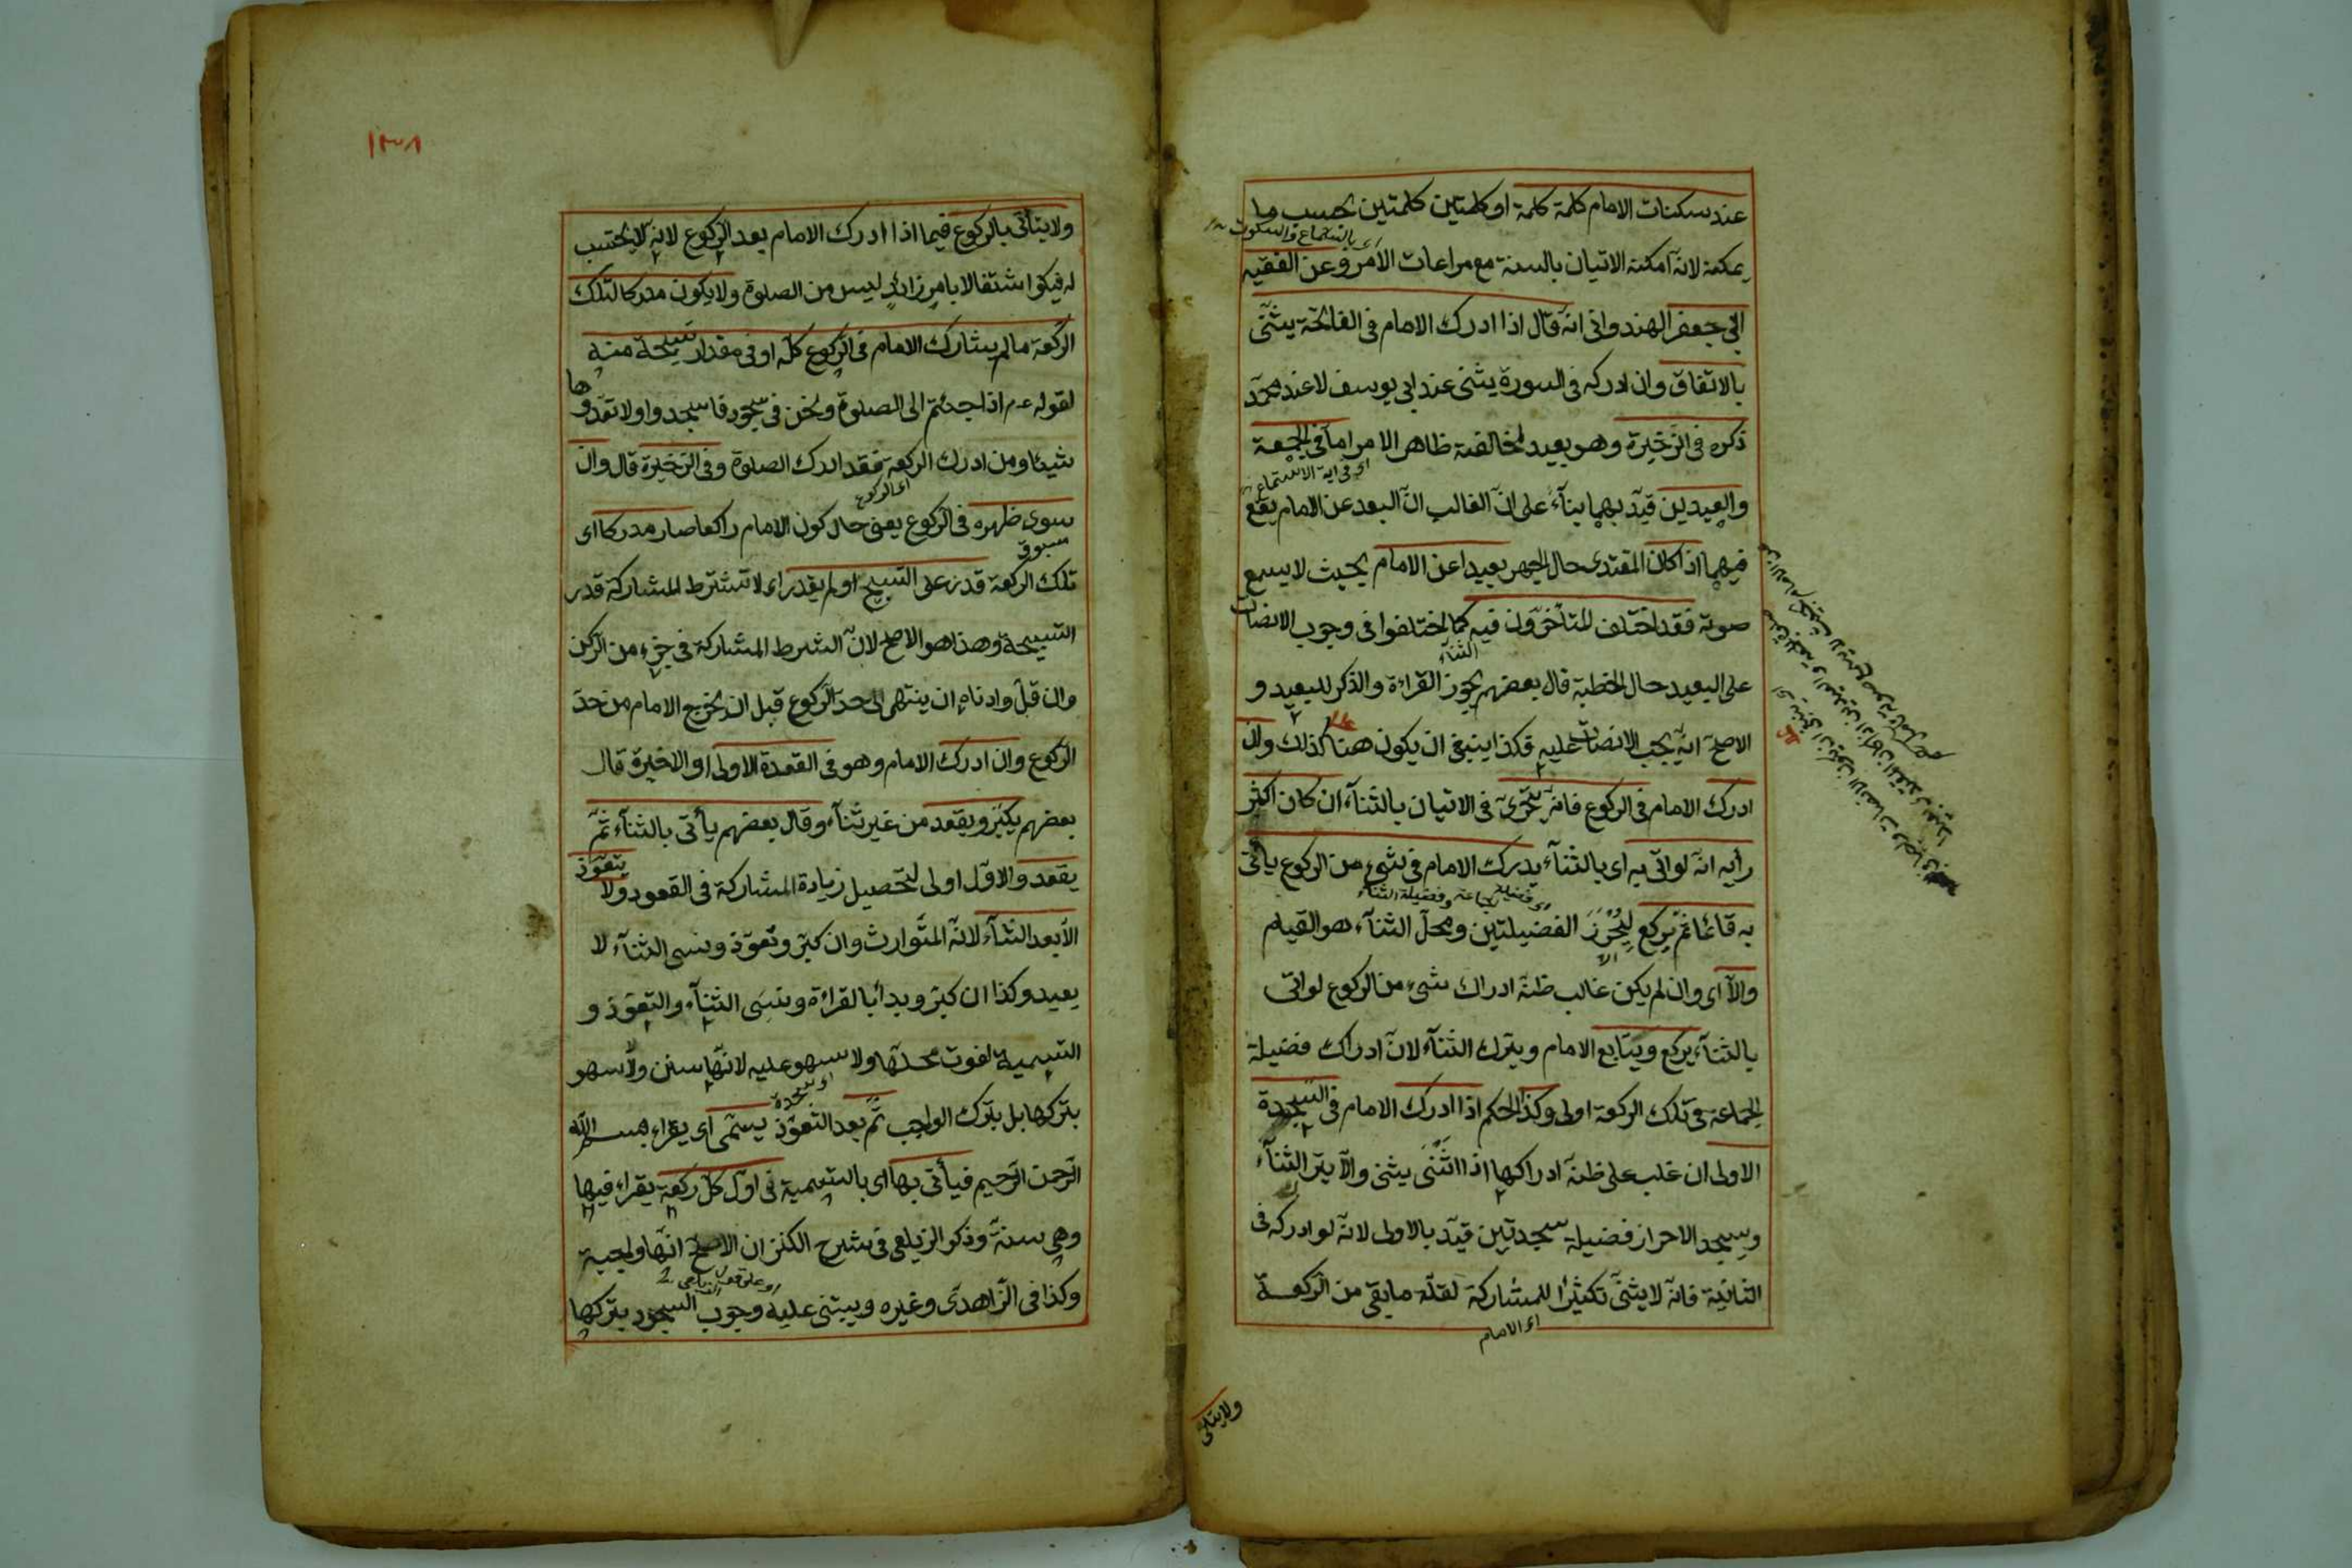 عند سكنات الامام كلمة كلمة او كلمتين كلمتين بحسب ما
اى بالاستماع والسكوت
يمكنه لانه امكنه الاتيان بالسنة مع مراعات الامر وعن الفقيه
ابى جعفر الهندوانى انه قال اذا ادرك الامام فى الفاتحة يثنى
بالاتفاق وان ادركه فى السورة يثنى عند ابى يوسف لا عند محمد
ذكره فى الذخيرة وهو بعيد لمخالفته ظاهر الامر اما فى الجمعة
اى فى اية الاستماع
والعيدين قيد بهما بناء على ان الغالب ان البعد عن الامام يقع
فيهما اذا كان المقتدى حال الجهر بعيدا عن الامام بحيث لا يسمع
صوته فقد اختلف المتأخرون فيه كما اختلفوا فى وجوب الانصات
الثناء
على البعيد حال الخطبة قال بعضهم يجوز القراءة والذكر للبعيد و
الاصح انه يجب الانصات عليه فكذا ينبغى ان يكون هنا كذلك وان
ادرك الامام فى الركوع فانه يتحرى فى الاتيان بالثناء ان كان اكثر
رأيه انه لو اتى به اى بالثناء يدرك الامام فى شىء من الركوع يأتى
اى فضيلة الجماعة وفضيلة الثناء
به قائما ثم يركع ليحرز الفضيلتين ومحل الثناء هو القيام
والا اى وان لم يكن غالب ظنه ادراك شىء من الركوع لو اتى
بالثناء يركع ويتابع الامام ويترك الثناء لان ادراك فضيلة
الجماعة فى تلك الركعة اولى وكذا الحكم اذا ادرك الامام فى السجدة
الاولى ان غلب على ظنه ادراكها اذا اثنى يثنى والا يترك الثناء
ويسجد لاحراز فضيلة سجدتين قيد بالاولى لانه لو ادركه فى
الثانية فانه لا يثنى تكثيرا للمشاركة لقلة ما بقى من الركعة
اى الامام
ولا يتأتى
١٣٨
ولا يتأتى بالركوع فيما اذا ادرك الامام بعد الركوع لانه لا يحتسب
له فيكون اشتغالا بامر زائد ليس من الصلوة ولا يكون مدركا لتلك
الركعة ما لم يشارك الامام فى الركوع كله او فى مقدار تسبيحة منه
لقوله عم اذا جئتم الى الصلوة ونحن فى سجود فاسجدوا ولا تعدوها
شيئا ومن ادرك الركعة فقد ادرك الصلوة وفى الذخيرة قال وان
اى الركوع
سوى ظهره فى الركوع يعنى حال كون الامام راكعا صار مدركا اى
مسبوق
تلك الركعة قدر على التسبيح او لم يقدر اى لا تشترط المشاركة قدر
التسبيحة وهذا هو الاصح لان الشرط المشاركة فى جزء من الركن
وان قل وادناه ان ينتهى الى حد الركوع قبل ان يخرج الامام من حد
الركوع وان ادرك الامام وهو فى القعدة الاولى او الاخيرة قال
بعضهم يكبر ويقعد من غير ثناء وقال بعضهم يأتى بالثناء ثم
يقعد والاول اولى لتحصيل زيادة المشاركة فى القعود ولا يتعوذ
الا بعد الثناء لانه المتوارث وان كبر وتعوذ ونسى الثناء لا
يعيد وكذا ان كبر وبدأ بالقراءة ونسى الثناء والتعوذ و
التسمية لفوت محلها ولا سهو عليه لانها سنن ولا سهو
بتركها بل بترك الواجب ثم بعد التعوذ يسمى اى يقراء بسم الله
الرحمن الرحيم فيأتى بها اى بالتسمية فى اول كل ركعة يقراء فيها
وهى سنة وذكر الزيلعى فى شرح الكنز ان الاصح انها واجبة
وكذا فى الزاهدى وغيره ويبتنى عليه وجوب السجود بتركها